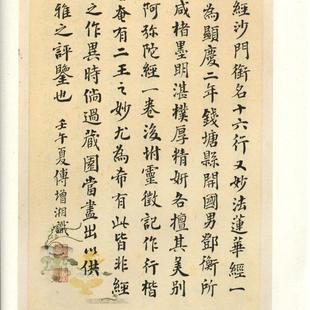 經沙門銜名十六行又妙法蓮華經一
為顯慶二年錢塘縣開國男鄧衡所
咸楮墨明湛樸厚精妍各擅其美别
阿弥陀經一卷後坿靈徵記作行楷
奄有二王之妙尤為希有此皆非經
之作異時倘過藏園當盡出以供
雅之評鑒也 壬午夏傅增湘識